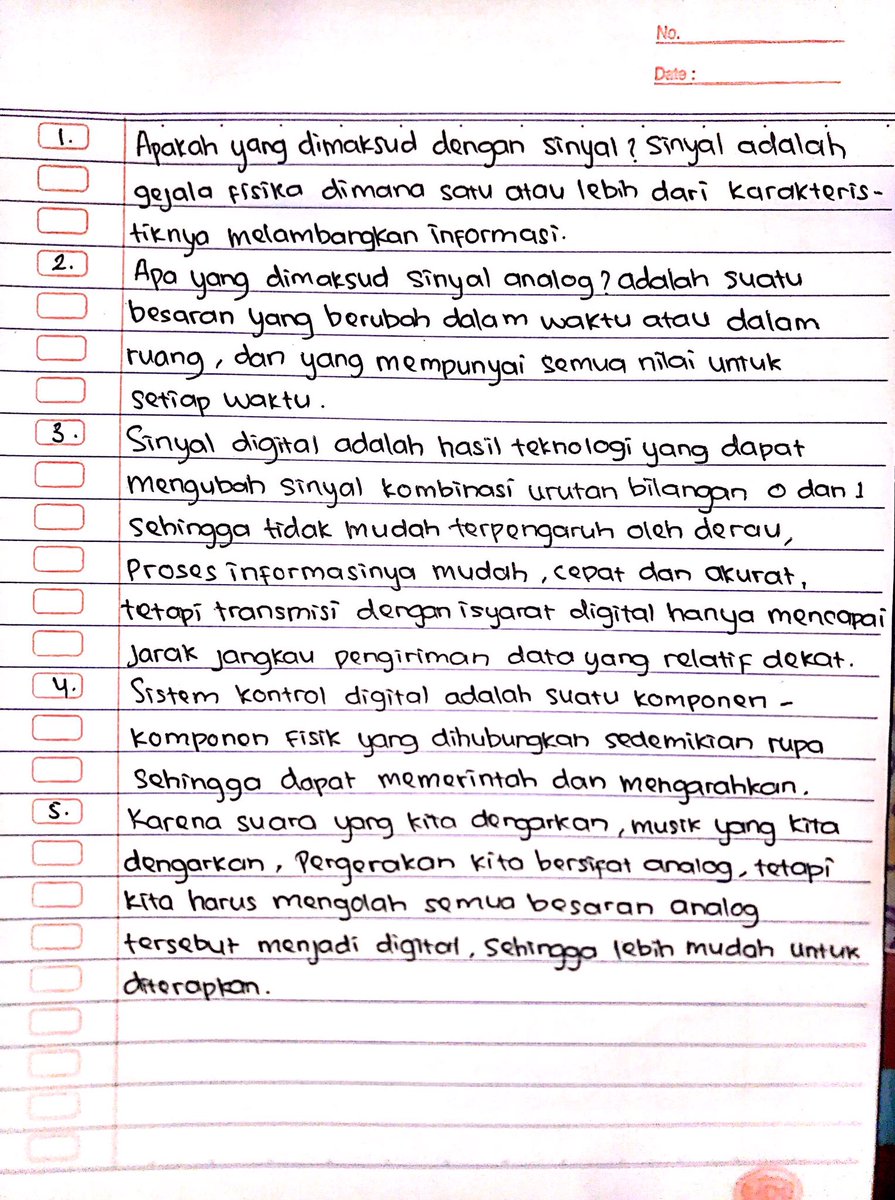 No.
Date :
1. Apakah yang dimaksud dengan sinyal? Sinyal adalah
gejala fisika dimana satu atau lebih dari karakteris-
tiknya melambangkan informasi.
2. Apa yang dimaksud sinyal analog? adalah suatu
besaran yang berubah dalam waktu atau dalam
ruang, dan yang mempunyai semua nilai untuk
setiap waktu.
3. Sinyal digital adalah hasil teknologi yang dapat
mengubah sinyal kombinasi urutan bilangan 0 dan 1
sehingga tidak mudah terpengaruh oleh derau,
proses informasinya mudah, cepat dan akurat,
tetapi transmisi dengan isyarat digital hanya mencapai
jarak jangkau pengiriman data yang relatif dekat.
4. Sistem kontrol digital adalah suatu komponen -
komponen fisik yang dihubungkan sedemikian rupa
sehingga dapat memerintah dan mengarahkan.
5. Karena suara yang kita dengarkan, musik yang kita
dengarkan, Pergerakan kita bersifat analog, tetapi
kita harus mengolah semua besaran analog
tersebut menjadi digital, sehingga lebih mudah untuk
diterapkan.